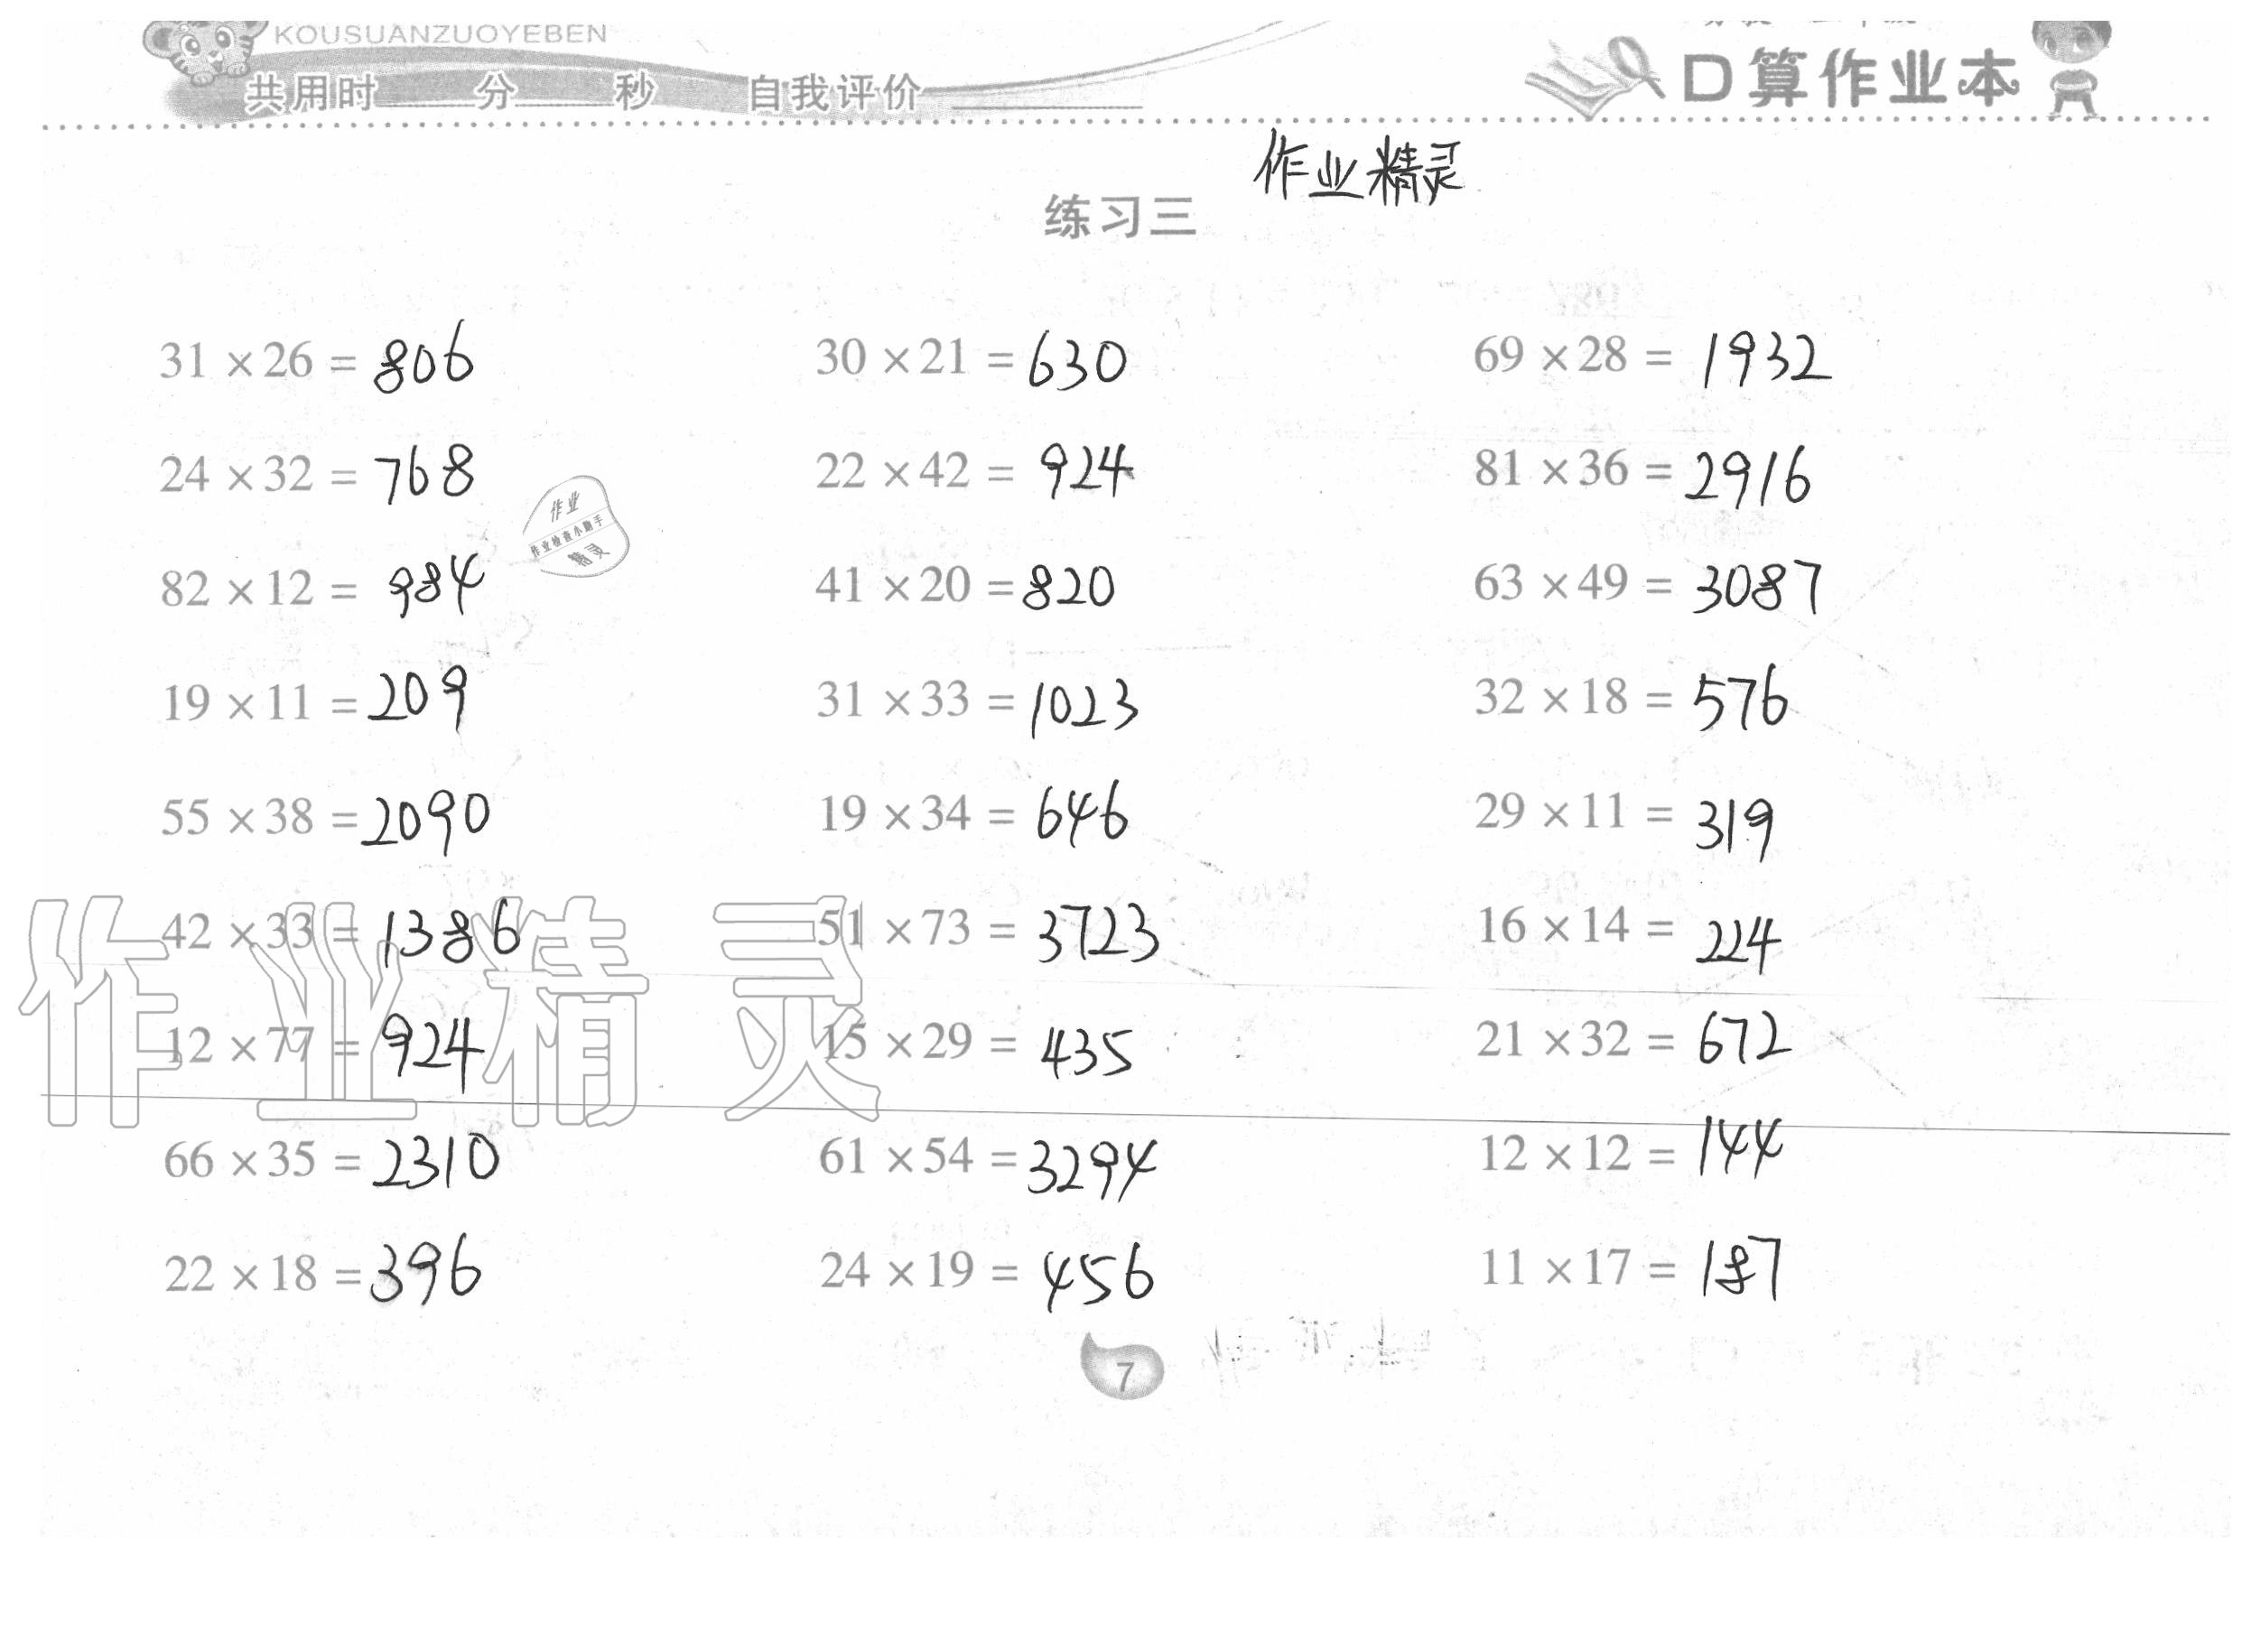 KOUSUANZUOYEBEN
共用时____分____秒 自我评价________
口算作业本
作业精灵
练习三
31 × 26 = 806 30 × 21 = 630 69 × 28 = 1932
24 × 32 = 768 22 × 42 = 924 81 × 36 = 2916
作业
作业检查小助手
精灵
82 × 12 = 984 41 × 20 = 820 63 × 49 = 3087
19 × 11 = 209 31 × 33 = 1023 32 × 18 = 576
55 × 38 = 2090 19 × 34 = 646 29 × 11 = 319
42 × 33 = 1386 51 × 73 = 3723 16 × 14 = 224
作业精灵
12 × 77 = 924 15 × 29 = 435 21 × 32 = 672
66 × 35 = 2310 61 × 54 = 3294 12 × 12 = 144
22 × 18 = 396 24 × 19 = 456 11 × 17 = 187
7